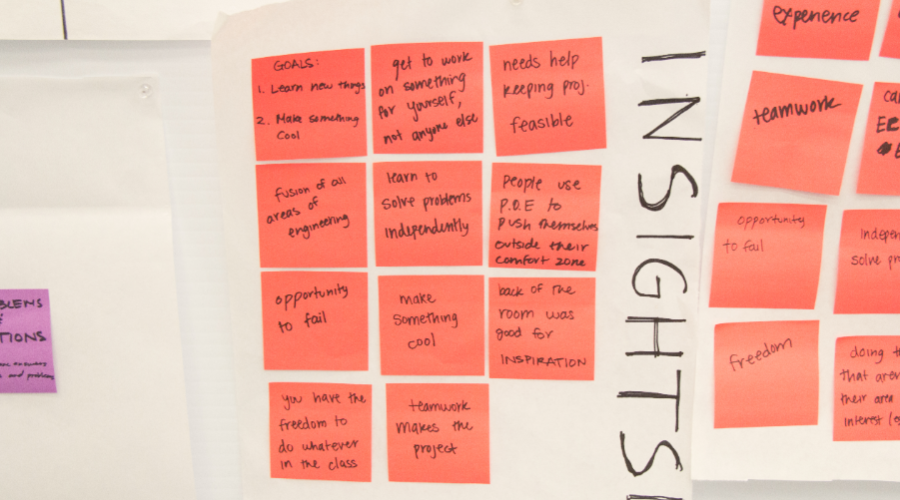 GOALS:
1. Learn new things
2. Make something
cool
get to work
on something
for yourself,
not anyone else
needs help
keeping proj.
feasible
fusion of all
areas of
engineering
learn to
solve problems
independently
People use
P.O.E to
push themselves
outside their
comfort zone
opportunity
to fail
make
something
cool
back of the
room was
good for
INSPIRATION
you have the
freedom to
do whatever
in the class
teamwork
makes the
project
INSIGHTS
experience
teamwork
opportunity
to fail
freedom
solve
doing
that
their area
interest
and problems